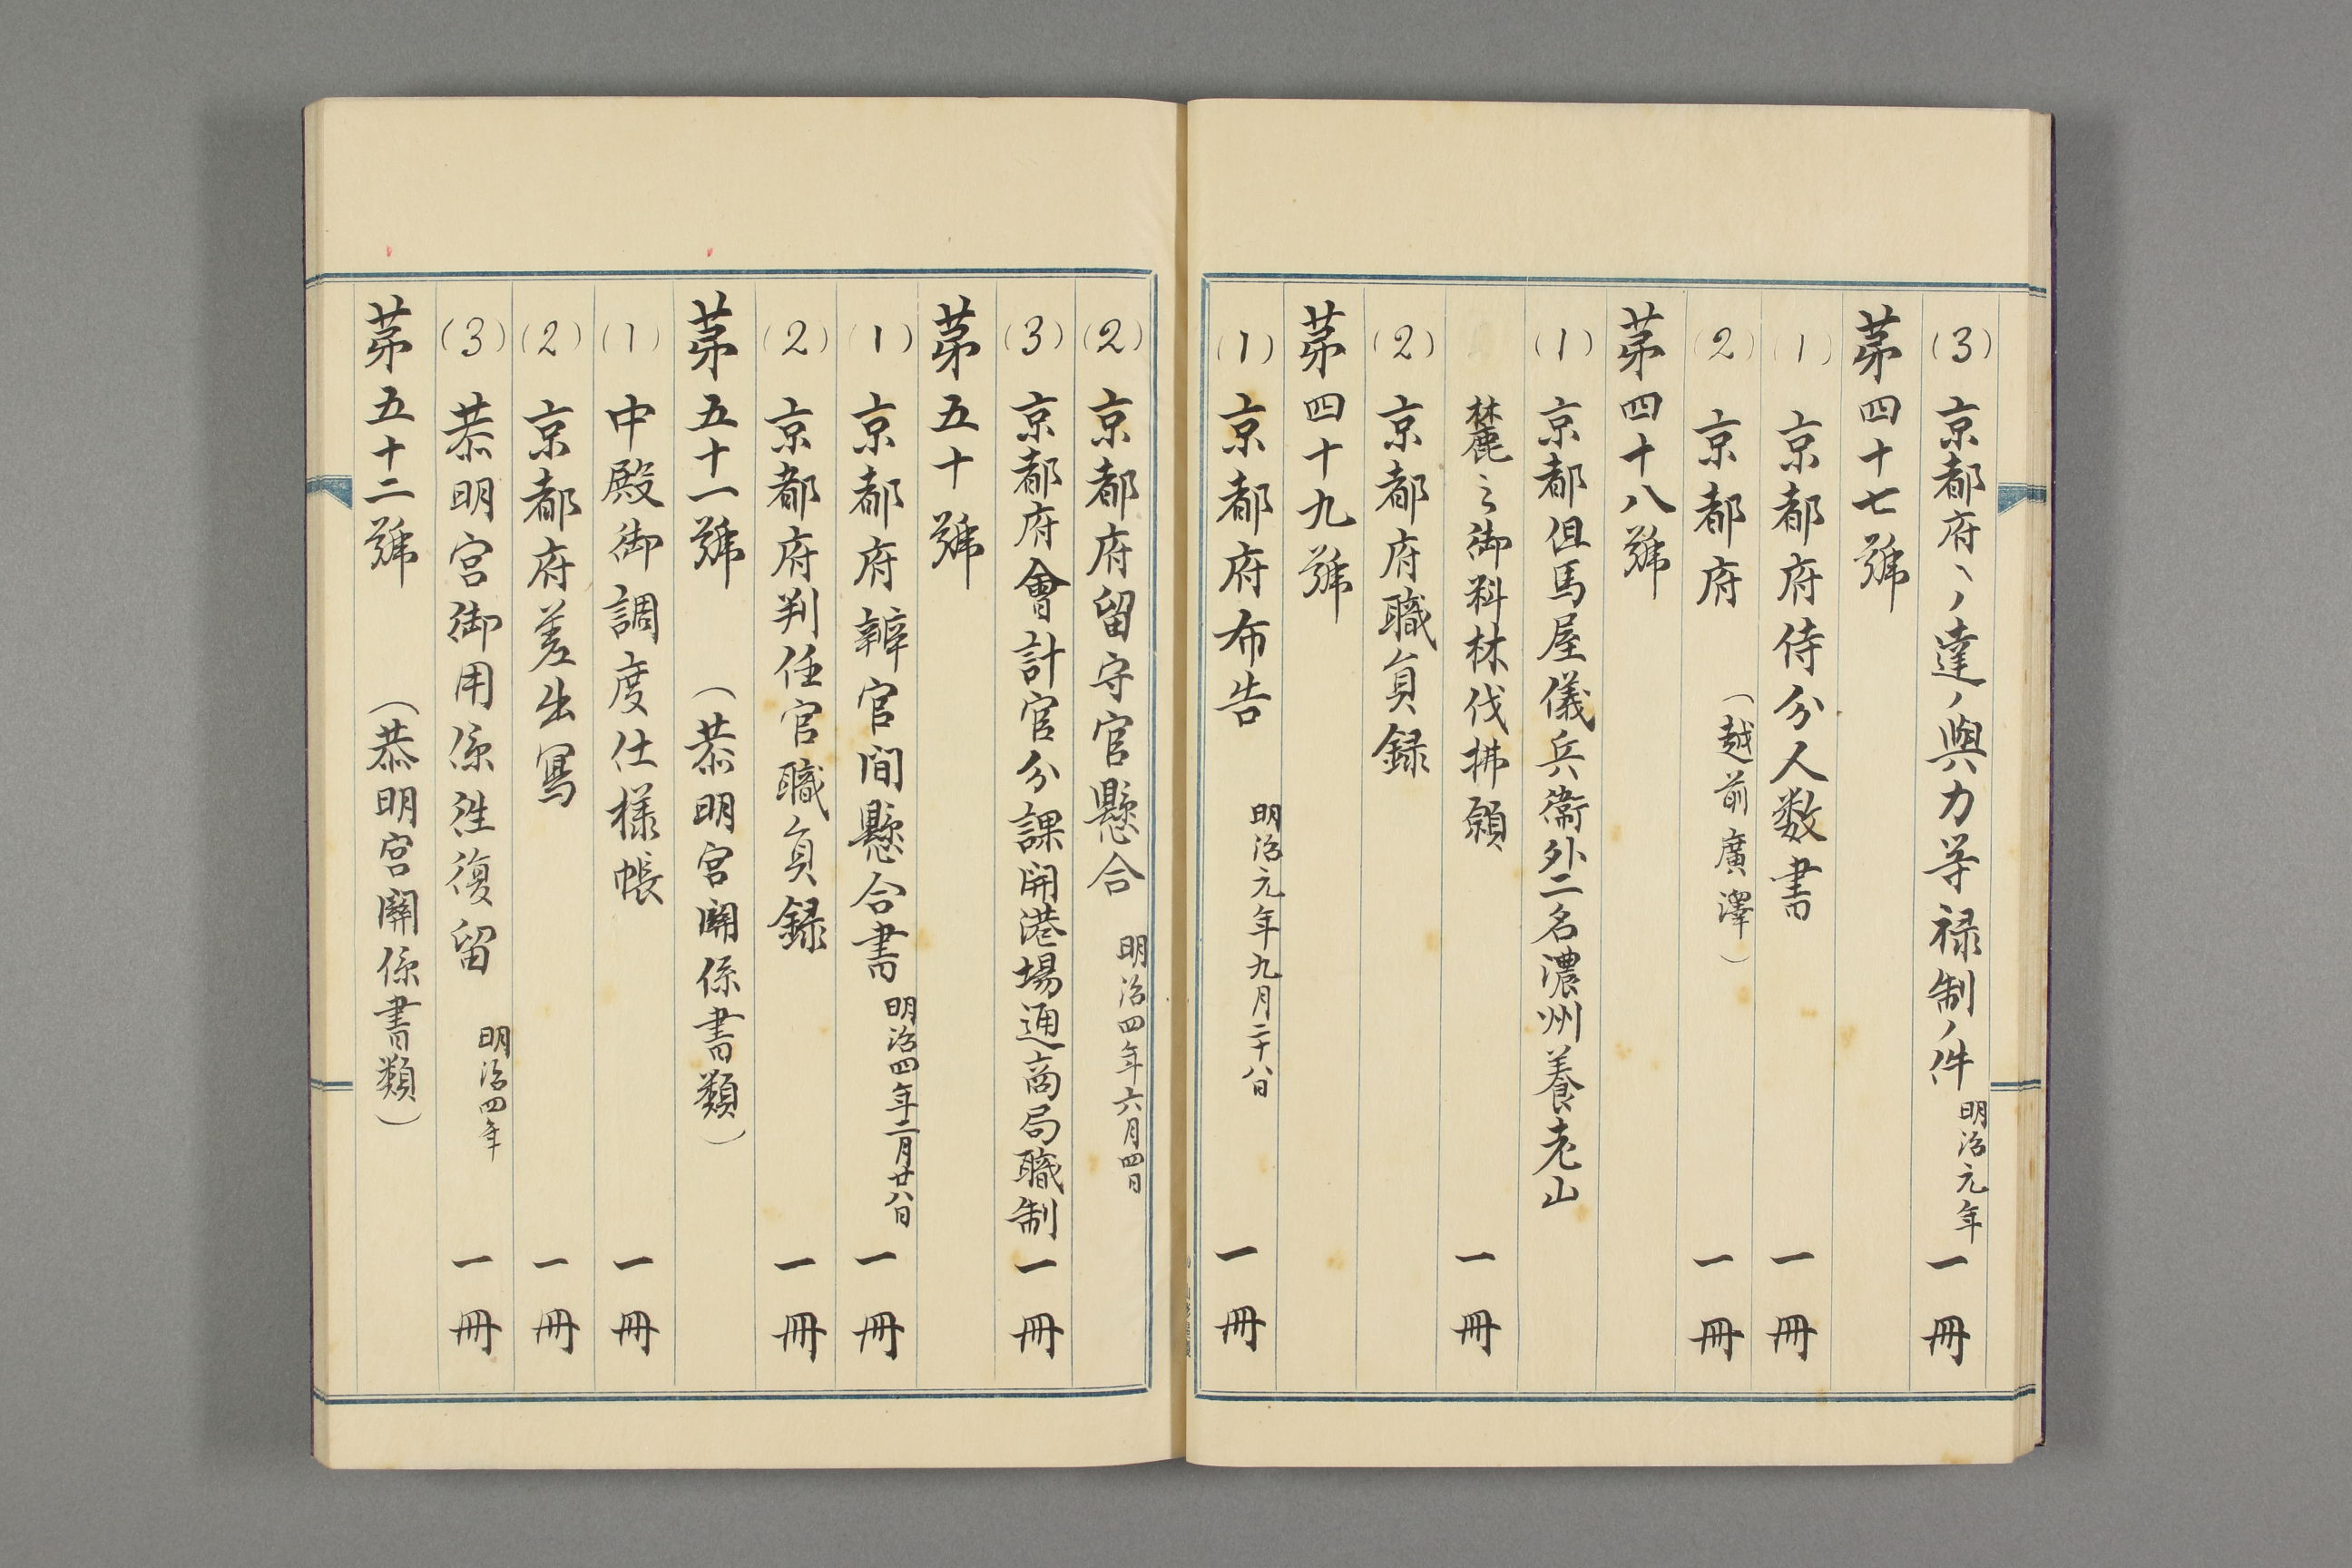 (3) 京都府ヘノ達ノ與力等禄制ノ件 明治元年 一冊
第四十七號
(1) 京都府侍分人数書 一冊
(2) 京都府 (越前廣澤) 一冊
第四十八號
(1) 京都但馬屋儀兵衞外二名濃州養老山
麓之御料林伐拂願 一冊
(2) 京都府職員録
第四十九號
(1) 京都府布告 明治元年九月二十八日 一冊
(2) 京都府留守官懸合 明治四年六月四日
(3) 京都府會計官分課開港場通商局職制 一冊
第五十號
(1) 京都府辨官間懸合書 明治四年二月廿八日 一冊
(2) 京都府判任官職員録 一冊
第五十一號 (恭明宮關係書類)
(1) 中殿御調度仕樣帳 一冊
(2) 京都府差出寫 一冊
(3) 恭明宮御用係徃復留 明治四年 一冊
第五十二號 (恭明宮關係書類)